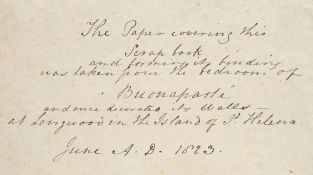 The Paper covering this
Scrap book
and forming its binding
was taken from the bedroom of
Buonaparte
and once decorated its Walls —
at Longwood in the Island of St. Helena.
June A. D. 1823.